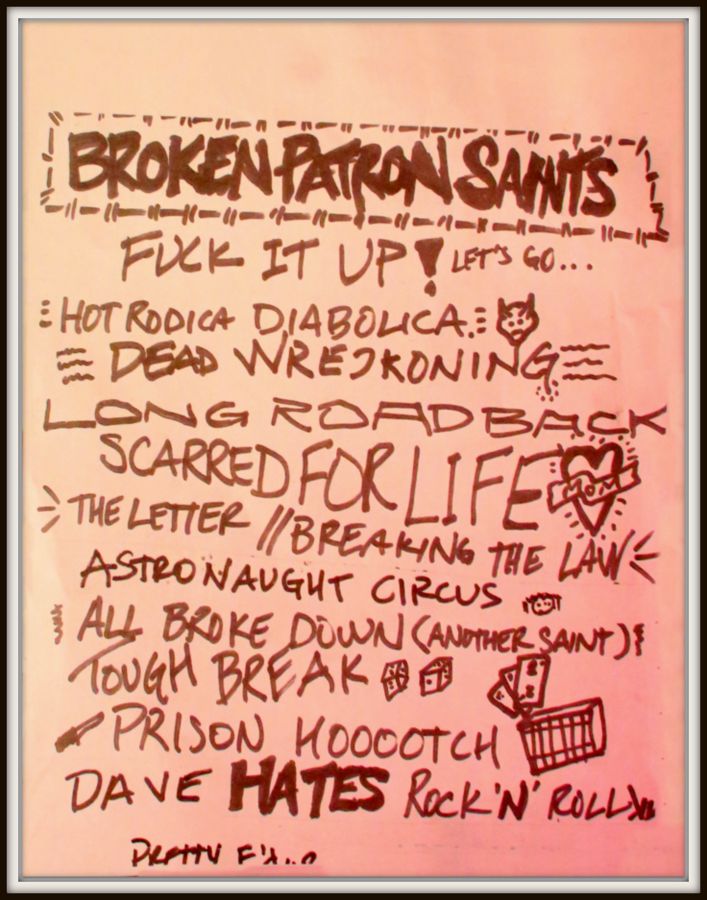 BROKEN PATRON SAINTS
FUCK IT UP! LET'S GO...
HOT RODICA DIABOLICA
DEAD WRECKONING
LONG ROAD BACK
SCARRED FOR LIFE
MOM
THE LETTER // BREAKING THE LAW
ASTRONAUGHT CIRCUS
ALL BROKE DOWN (ANOTHER SAINT)
TOUGH BREAK
PRISON HOOOOTCH
DAVE HATES ROCK 'N' ROLL
PRETTY